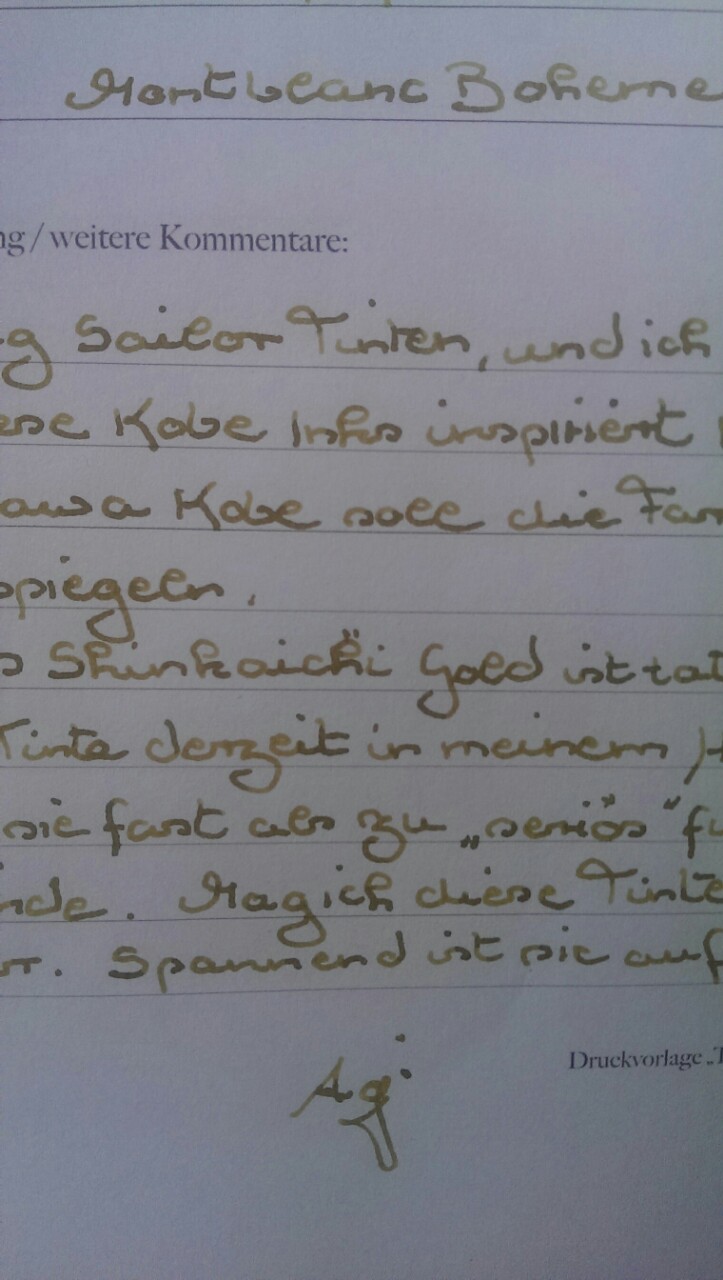 Montblanc Boheme
ng / weitere Kommentare:
g Sailor Tinten, und ich
ese Kobe Inks inspiriert
awa Kobe soll die Far
spiegeln.
s Shinkaichi Gold ist tat
Tinte derzeit in meinem H
sie fast als zu „seriös“ fü
nde. Mag ich diese Tinte
rr. Spannend ist sie auf
Druckvorlage „T
Agi